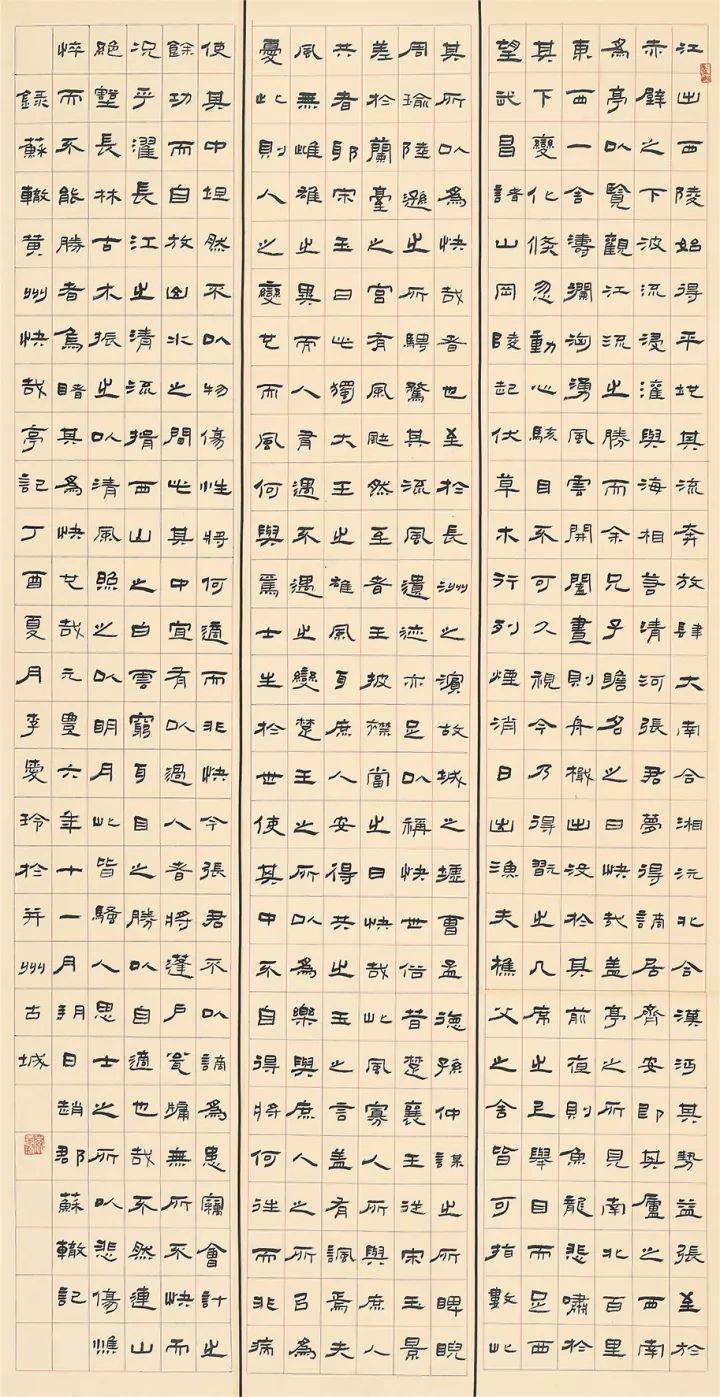 江出西陵始得平地其流奔放肆大南合湘沅北合漢沔其勢益張至於
赤壁之下波流浸灌與海相若清河張君夢得謫居齊安即其廬之西南
為亭以覽觀江流之勝而余兄子瞻名之曰快哉蓋亭之所見南北百里
東西一舍濤瀾洶湧風雲開闔晝則舟楫出沒於其前夜則魚龍悲嘯於
其下變化倏忽動心駭目不可久視今乃得翫之几席之上舉目而足西
望武昌諸山岡陵起伏草木行列煙消日出漁夫樵父之舍皆可指數此
其所以為快哉者也至於長洲之濱故城之墟曹孟德孫仲謀之所睥睨
周瑜陸遜之所騁騖其流風遺迹亦足以稱快世俗昔楚襄王從宋玉景
差於蘭臺之宮有風颯然至者王披襟當之曰快哉此風寡人所與庶人
共者耶宋玉曰此獨大王之雄風耳庶人安得共之玉之言蓋有諷焉夫
風無雌雄之異而人有遇不遇之變楚王之所以為樂與庶人之所以為
憂此則人之變也而風何與焉士生於世使其中不自得將何往而非病
使其中坦然不以物傷性將何適而非快今張君不以謫為患竊會計之
餘功而自放山水之間此其中宜有以過人者將蓬戶甕牖無所不快而
況乎濯長江之清流揖西山之白雲窮耳目之勝以自適也哉不然連山
絕壑長林古木振之以清風照之以明月此皆騷人思士之所以悲傷憔
悴而不能勝者烏睹其為快也哉元豐六年十一月朔日趙郡蘇轍記
錄蘇轍黃州快哉亭記丁酉夏月李愛玲於并州古城